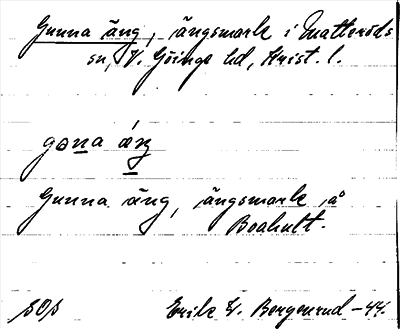 Gunna äng, ängsmark i Matteröds
sn, V. Göinge hd, Krist. l.
gɔna áŋ
Gunna äng, ängsmark på
Boahult.
Erik V. Bergenrud -44.